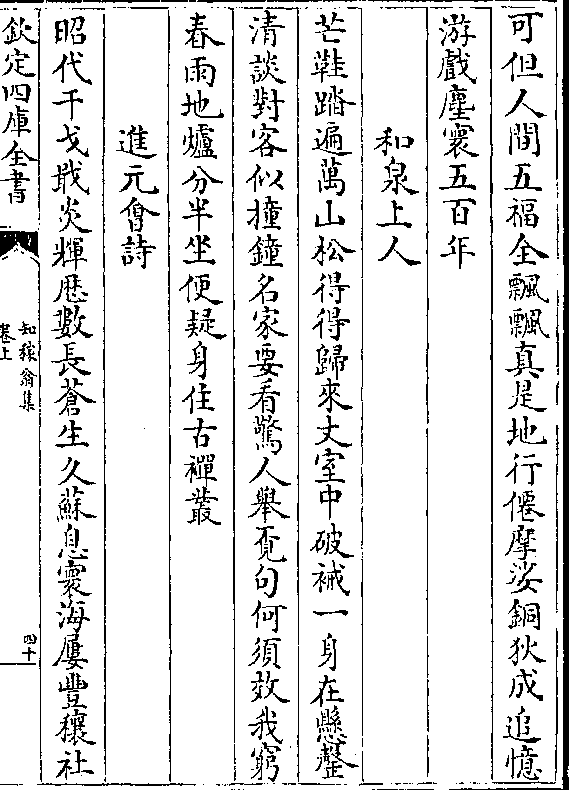 可但人間五福全飄飄真是地行僊摩娑銅狄成追憶
游戲塵寰五百年
和泉上人
芒鞋踏遍萬山松得得歸來丈室中破裓一身在懸罄
清談對客似撞鐘名家要看驚人舉覓句何須效我窮
春雨地爐分半坐便疑身住古禪叢
進元會詩
昭代干戈戢炎輝厯數長蒼生久蘇息寰海屢豐穰社
欽定四庫全書
知稼翁集
卷上
四十